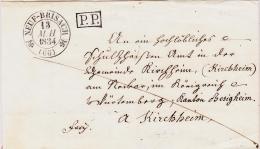 NEUF-BRISACH
13
MAI
1834
(66)
P.P.
An ein hochlöbliches
Schultheißen Amt in der
Gemeinde Kirchheim, (Kirchheim)
am Neckar, im Königreich
Würtemberg, Kanton Besigheim.
à Kirchheim.